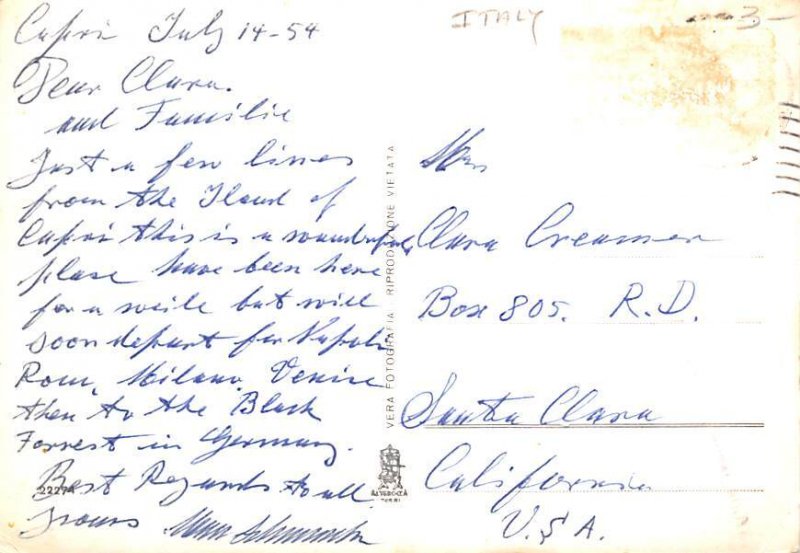 Capri July 14-54
Dear Clara.
and Familie
Just a few lines
from the Iland of
Capri this is a wounderful
plase have been here
for a weile but will
soon depart for Napoli
Rom, Milano, Venise
then to the Black
Forrest in Germany.
Best Regards to all
Yours
ITALY
-3-
Mrs
Clara Creamer
Box 805. R.D.
Santa Clara
California
U.S.A.
VERA FOTOGRAFIA - RIPRODUZIONE VIETATA
2227A